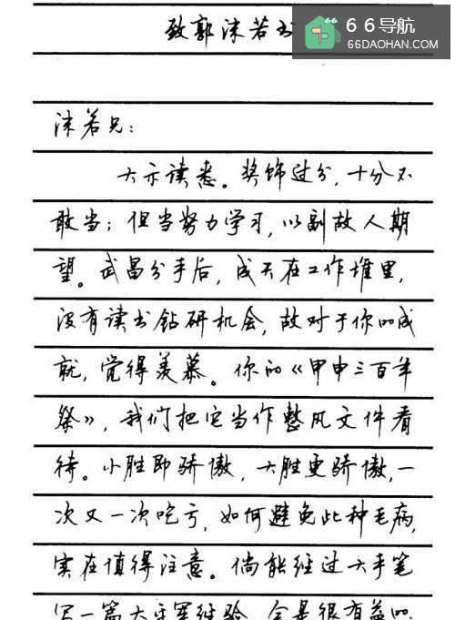 致郭沫若书
66导航
66DAOHAN.COM
沫若兄：
大示读悉。奖饰过分，十分不
敢当；但当努力学习，以副故人期
望。武昌分手后，成天在工作堆里，
没有读书钻研机会，故对于你的成
就，觉得羡慕。你的《甲申三百年
祭》，我们把它当作整风文件看
待。小胜即骄傲，大胜更骄傲，一
次又一次吃亏，如何避免此种毛病，
实在值得注意。倘能经过大手笔
写一篇太平军经验，会是很有益的